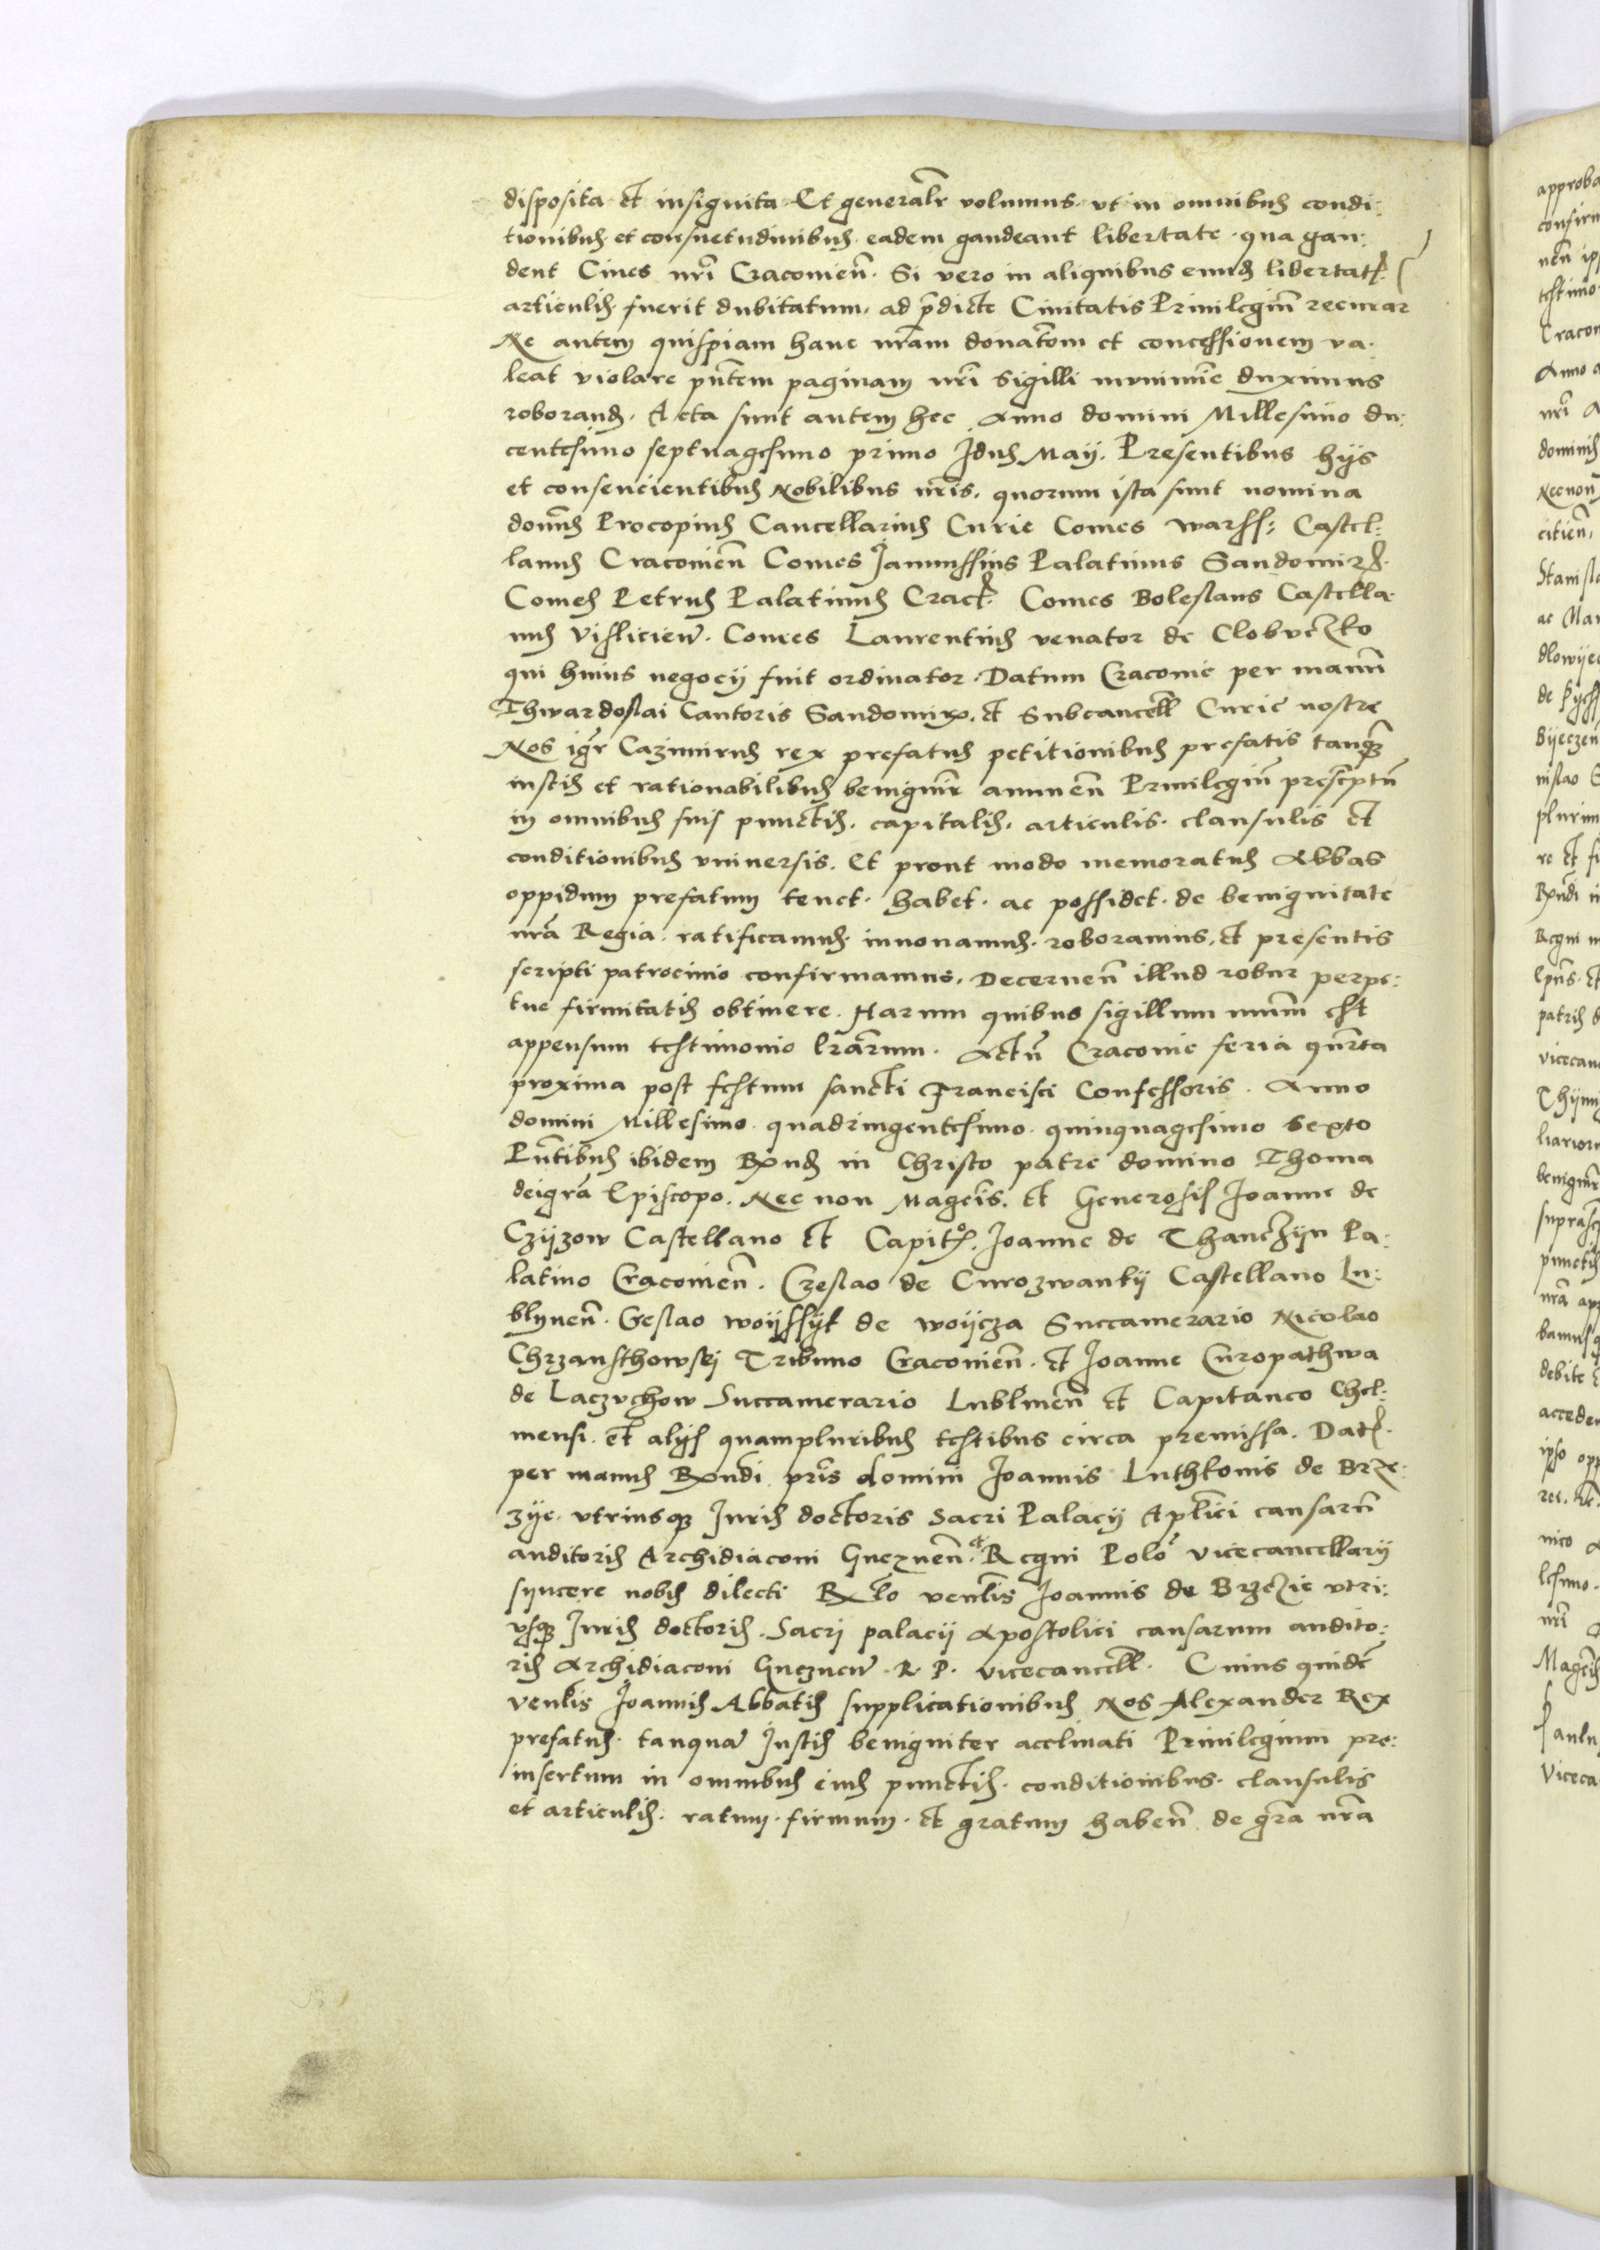 disposita et insignita Et generalr volumus. vt in omnibus condi:
tionibus et consuetudinibus. eadem gaudeant libertate. qua gau:
dent Ciues nrī Cracouien̄. Si vero in aliquibus eiusd libertat
articulis fuerit dubitatum, ad p̄dicte Ciuitatis Priuilegiū recurrar
Ne autem quispiam hanc nr̄am donatōem et concessionem va:
leat violare pn̄tem paginam nrī sigilli munimīe duximus
roborand. Acta sunt autem hec Anno domini Millesimo du:
centesimo septuagesimo primo Idus Maij. Presentibus hijs
et consencientibus Nobilibus nrīs. quorum ista sunt nomina
domn̄s Procopius Cancellarius Curie Comes warss: Castel:
lanus Cracouien̄ Comes Janussius Palatinus Sandomir.
Comes Petrus Palatinus Crac. Comes Boleslaus Castella:
nus Visliciēn. Comes Laurentius venator de Clobuczko
qui huius negocij fuit ordinator. Datum Cracouie per manū
Thwardoslai Cantoris Sandomir. et Subcancell Curie nostre
Nos igr Cazimirus rex prefatus petitionibus prefatis tanq̄
iustis et rationabilibus benignr̄ annuen̄ Priuilegiū prescrptū
in omnibus suis punctis. capitalis. articulis. clausulis et
conditionibus vniuersis. Et prout modo memoratus Abbas
oppidum prefatum tenet. habet. ac possidet. de benignitate
nrā Regia. ratificamus. innouamus. roboramus. et presentis
scripti patrocinio confirmamus. Decernen̄ illud robur perpe:
tue firmitatis obtinere. Harum quibus sigillum nrūm est
appensum testimonio lrārum. Actū Cracouie feria quarta
proxima post festum sancti Francisci Confessoris. Anno
domini Millesimo. quadringentesimo. quinquagesimo sexto
Pn̄tibus ibidem Rnd in Christo patre domino Thoma
deigrā Episcopo. Nec non Magcis. et Generosis Joanne de
Czyzow Castellano et Capit. Joanne de Thanczijn Pa:
latino Cracouien̄. Czeslao de Curozwanky Castellano Lu:
blynen̄. Geslao woijssijk de woijcza Succamerario Nicolao
Chrzansthowskj Tribuno Cracouien̄. et Joanne Curopathwa
de Laczuchow Succamerario Lublinen̄ et Capitaneo Chel:
mensi. et alijs quampluribus testibus circa premissa. Dat.
per manus Rndi pris domini Joannis Luthkonis de Brze:
zye. vtriusq Juris doctoris Sacri Palacij Aplici causarū
auditoris Archidiaconi Gneznen̄. et Regni Polo vicecancellarij
syncere nobis dilecti Rlo venlis Joannis de Brzezie vtri:
usq Juris doctoris. Sacrj palacij Apostolici causarum audito:
ris Archidiaconi Gneznen̄. R. P. vicecancell. Cuius quidē
venlis Joannis Abbatis supplicationibus Nos Alexander Rex
prefatus. tanquā Justis benigniter acclinati Priuilegium pre:
insertum in omnibus eius punctis. conditionibus. clausulis
et articulis. ratum. firmum. et gratum haben̄ de grā nrā